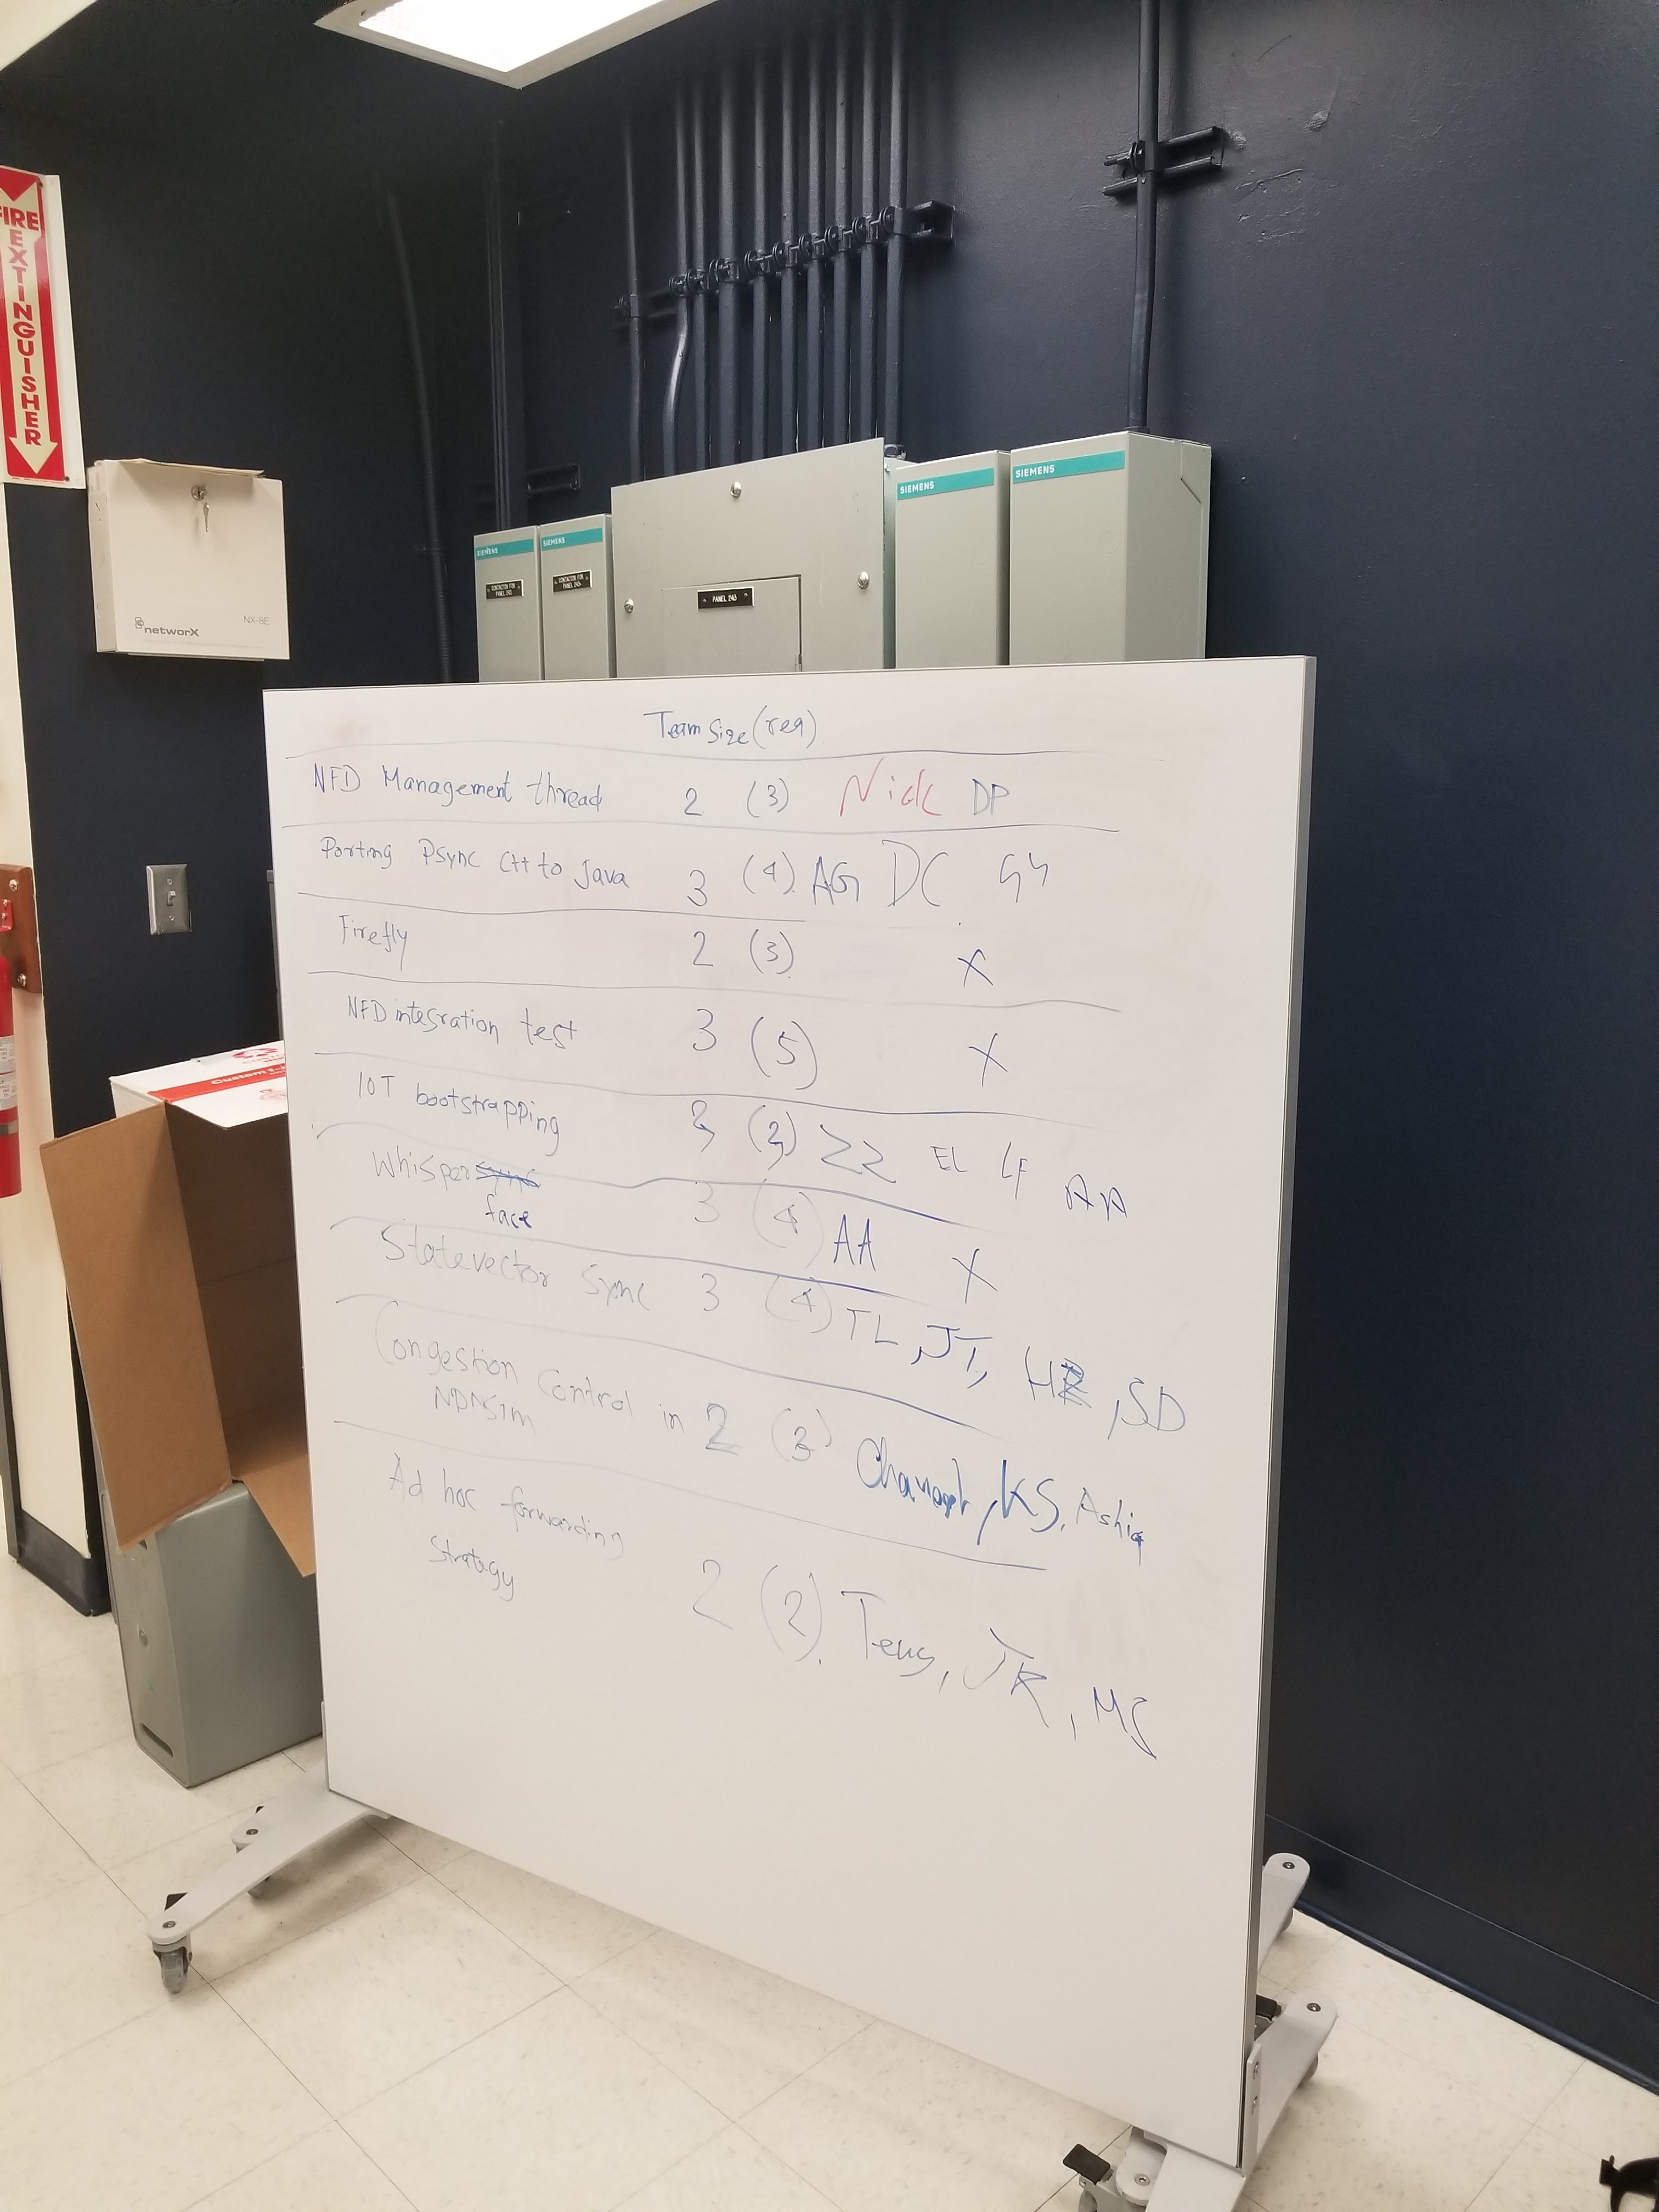 FIRE
EXTINGUISHER
SIEMENS
SIEMENS
SIEMENS
SIEMENS
CONTACTOR FOR
PANEL 243
CONTACTOR FOR
PANEL 243
PANEL 243
networX NX-8E
Team Size (req)
NFD Management thread 2 (3) Nick DP
Porting PSync C++ to Java 3 (4) AG DC
Firefly 2 (3) X
NFD integration test 3 (5) X
IOT bootstrapping ZZ EL LF AA
Whisper
face 3 (4) AA X
Statevector Sync 3 (4) TL, JT, SD
Congestion Control in 2 (3) KS, Ashiq
NDNSim
Ad hoc forwarding
Strategy 2 (2) Teng, JR, MS